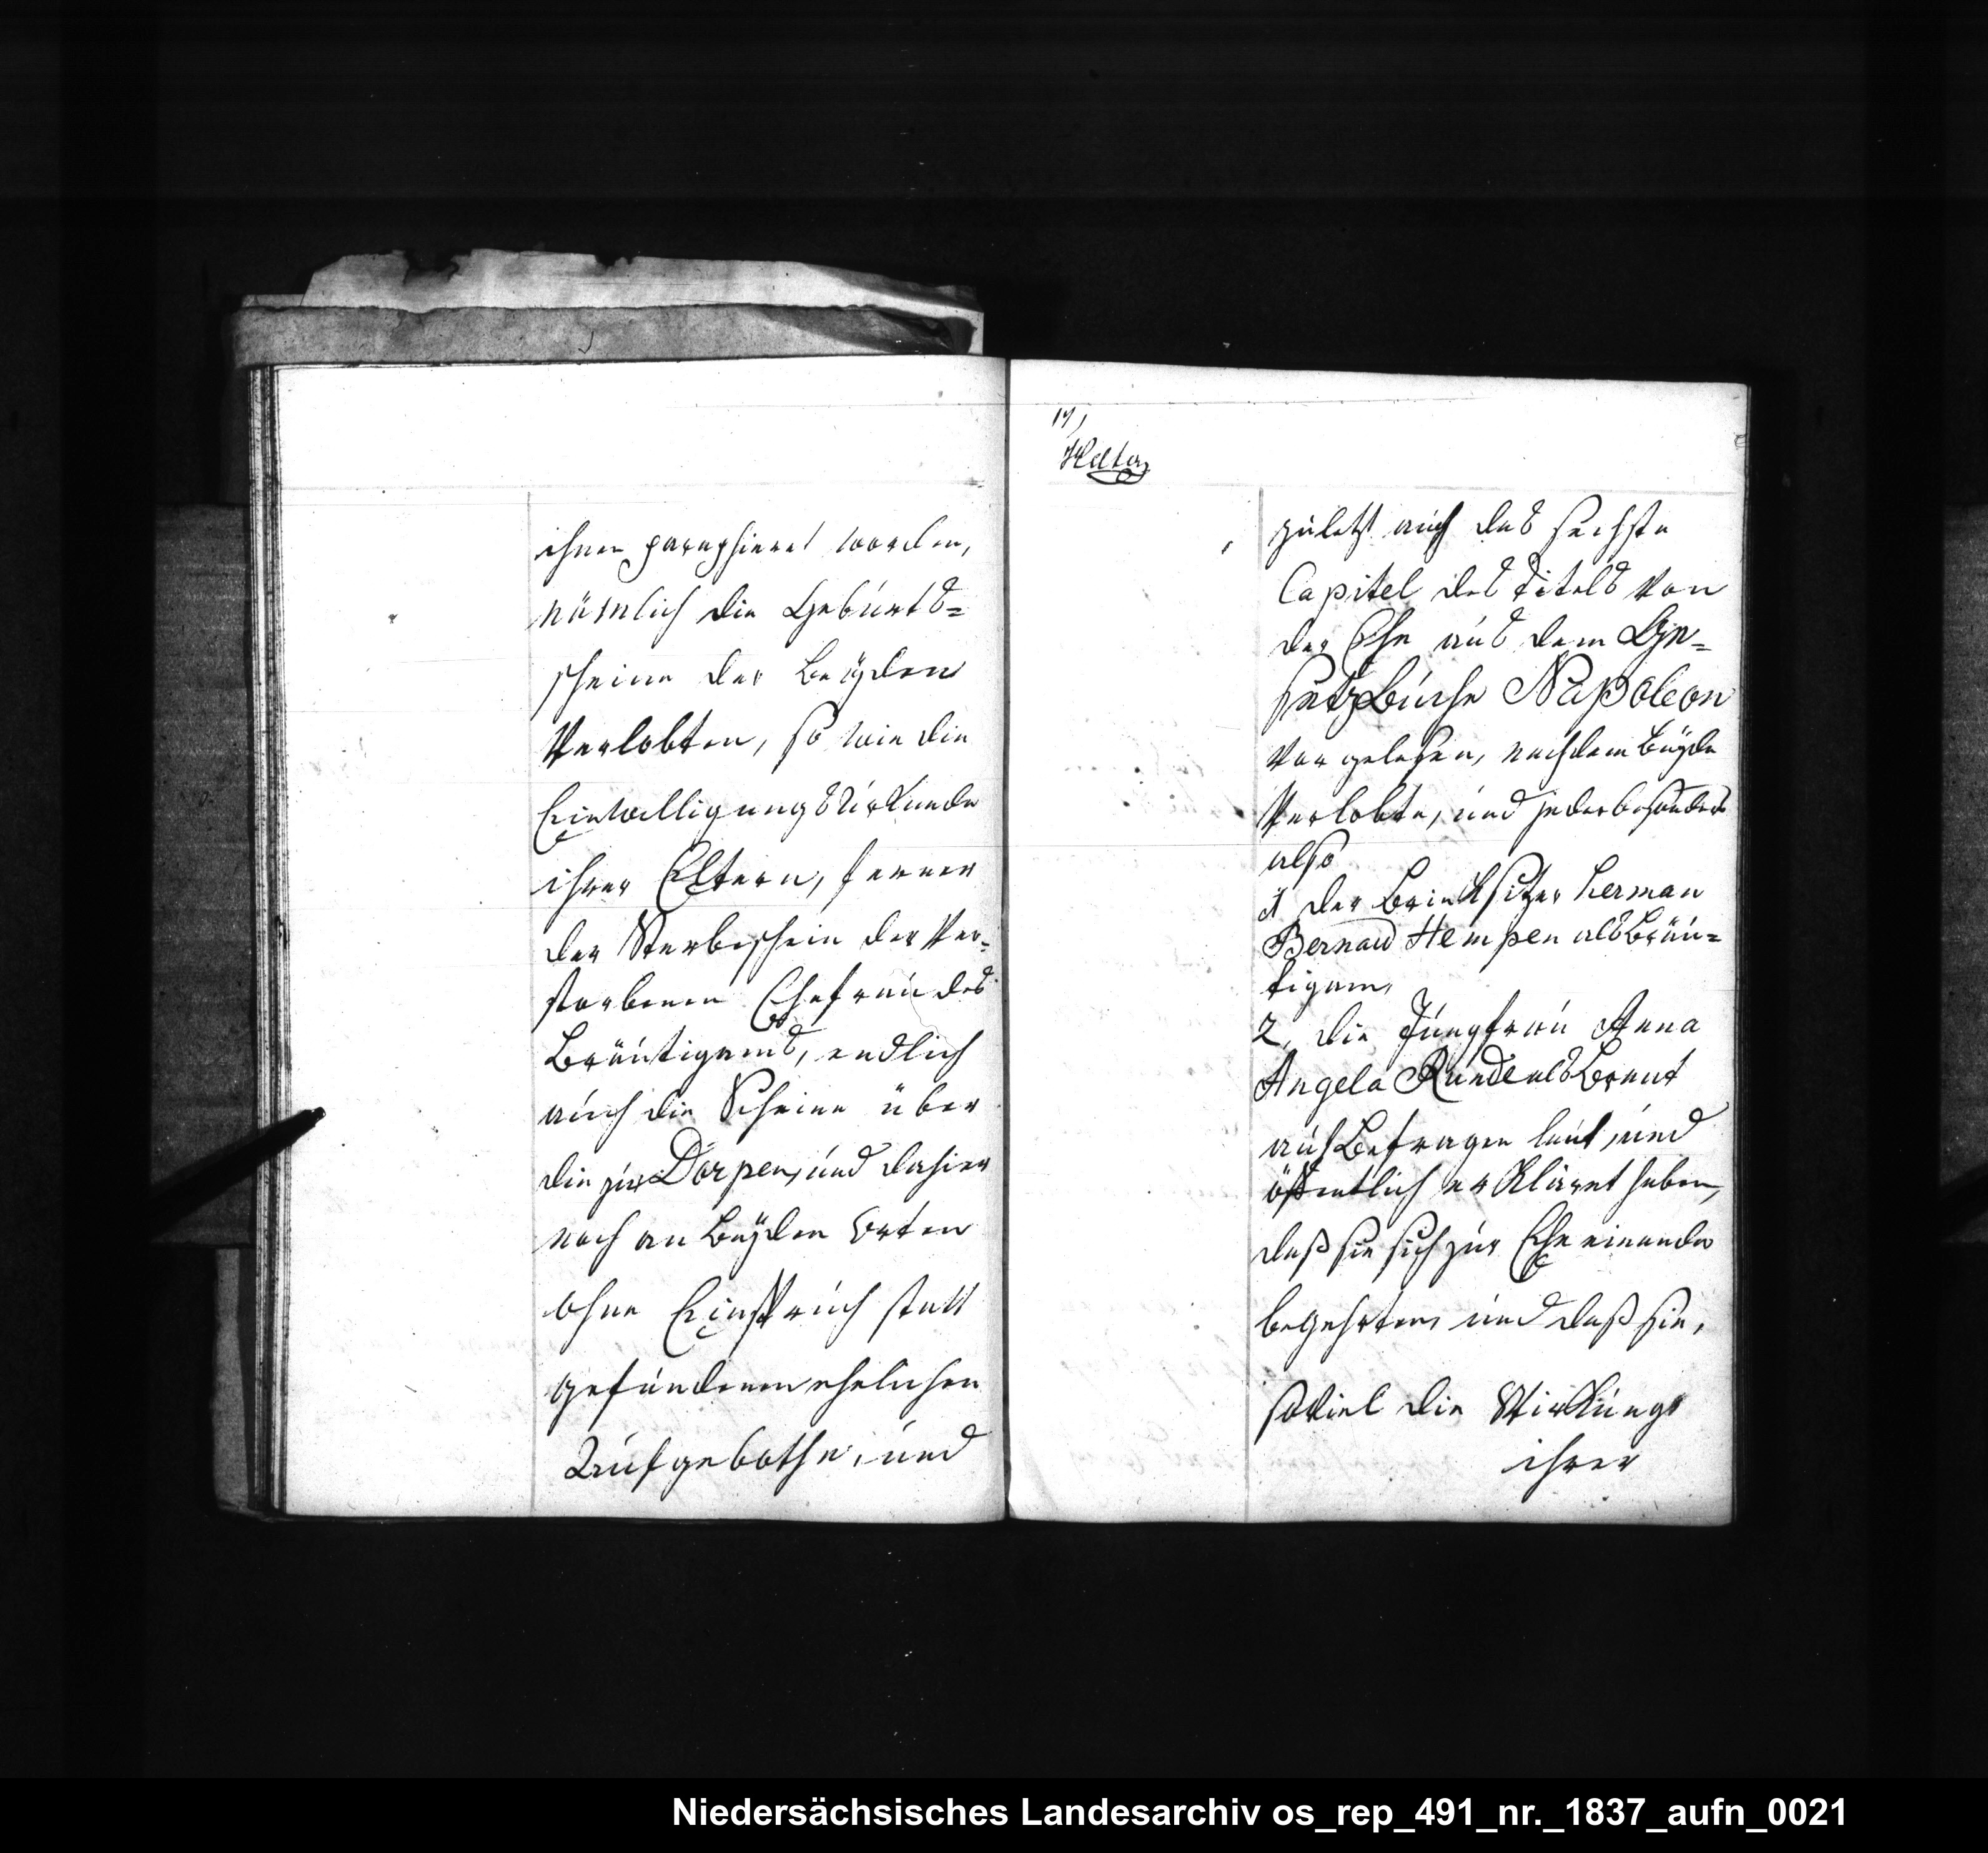 ihnen paraphieret worden,
nämlich die Geburts=
scheine der beyden
Verlobten, so wie die
Einwilligungs Urkunde
ihrer Eltern, ferner
der Sterbeschein der Ver=
storbenen Ehefrau des
Bräutigams, endlich
auch die Scheine über
die zu Dörpen, und dahier
noch an beyden Orten
ohne Einspruch statt
gefundenen ehelichen
Aufgebothe, und
17,
zuletzt auch das sechste
Capitel des Titels von
der Ehe aus dem Ge=
setzbuche Napoleon
vorgelesen, nachdem beyde
Verlobte, und jeder besonders
also
1 der Brinksitzer Herman
Bernard Hempen als Bräu=
tigam,
2, die Jungfrau Anna
Angela Runde als Braut
auf Befragen laut, und
öffentlich erkläret haben,
daß sie sich zur Ehe einander
begehrten, und daß sie,
soviel die Wirkungs
ihrer
Niedersächsisches Landesarchiv os_rep_491_nr._1837_aufn_0021